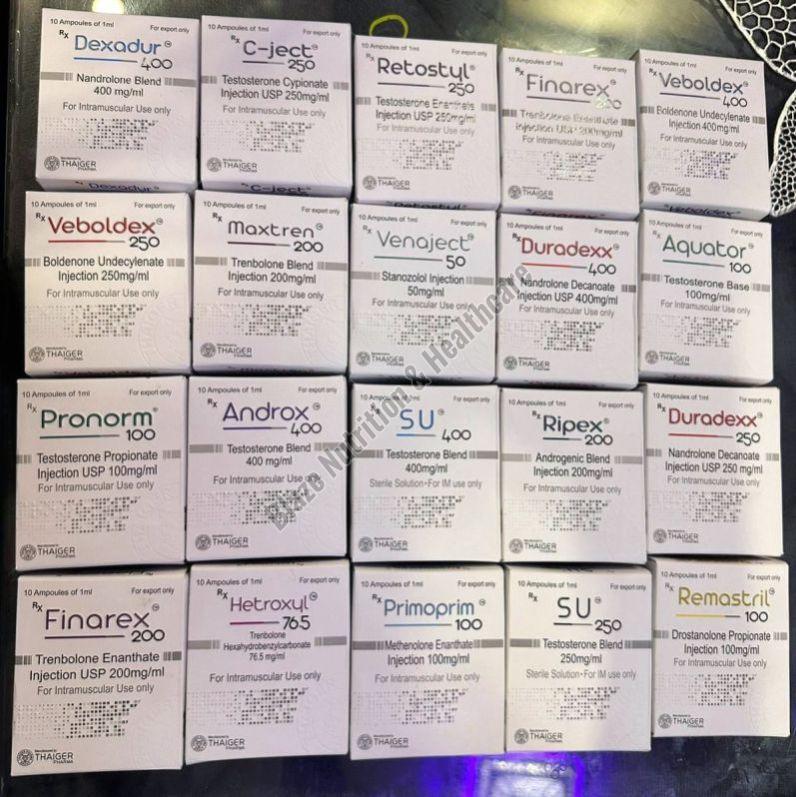 10 Ampoules of 1ml For export only
Rx Dexadur®
400
Nandrolone Blend
400 mg/ml
For Intramuscular Use only
Manufactured by
THAIGER
PHARMA
Dexadur
10 Ampoules of 1ml For export only
Rx C-ject®
250
Testosterone Cypionate
Injection USP 250mg/ml
For Intramuscular Use only
Manufactured by
THAIGER
PHARMA
C-ject
10 Ampoules of 1ml For export only
Rx Retostyl®
250
Testosterone Enantate
Injection USP 250mg/ml
For Intramuscular Use only
Manufactured by
THAIGER
PHARMA
Retostyl
10 Ampoules of 1ml For export only
Rx Finarex®
200
Trenbolone Enanthate
Injection USP 200mg/ml
For Intramuscular Use only
Manufactured by
THAIGER
PHARMA
Finarex
10 Ampoules of 1ml For export only
Rx Veboldex®
400
Boldenone Undecylenate
Injection 400mg/ml
For Intramuscular Use only
Manufactured by
THAIGER
PHARMA
Veboldex
10 Ampoules of 1ml For export only
Rx Veboldex®
250
Boldenone Undecylenate
Injection 250mg/ml
For Intramuscular Use only
Manufactured by
THAIGER
PHARMA
10 Ampoules of 1ml For export only
Rx Maxtren®
200
Trenbolone Blend
Injection 200mg/ml
For Intramuscular Use only
Manufactured by
THAIGER
PHARMA
10 Ampoules of 1ml For export only
Rx Venaject®
50
Stanozolol Injection
50mg/ml
For Intramuscular Use only
Manufactured by
THAIGER
PHARMA
10 Ampoules of 1ml For export only
Rx Duradexx®
400
Nandrolone Decanoate
Injection USP 400mg/ml
For Intramuscular Use only
Manufactured by
THAIGER
PHARMA
10 Ampoules of 1ml For export only
Rx Aquator®
100
Testosterone Base
100mg/ml
For Intramuscular Use only
Manufactured by
THAIGER
PHARMA
10 Ampoules of 1ml For export only
Rx Pronorm®
100
Testosterone Propionate
Injection USP 100mg/ml
For Intramuscular Use only
Manufactured by
THAIGER
PHARMA
10 Ampoules of 1ml For export only
Rx Androx®
400
Testosterone Blend
400 mg/ml
For Intramuscular Use only
Manufactured by
THAIGER
PHARMA
10 Ampoules of 1ml For export only
Rx SU®
400
Testosterone Blend
400mg/ml
Sterile Solution-For IM use only
Manufactured by
THAIGER
PHARMA
10 Ampoules of 1ml For export only
Rx Ripex®
200
Androgenic Blend
Injection 200mg/ml
For Intramuscular Use only
Manufactured by
THAIGER
PHARMA
10 Ampoules of 1ml For export only
Rx Duradexx®
250
Nandrolone Decanoate
Injection USP 250 mg/ml
For Intramuscular Use only
Manufactured by
THAIGER
PHARMA
10 Ampoules of 1ml For export only
Rx Finarex®
200
Trenbolone Enanthate
Injection USP 200mg/ml
For Intramuscular Use only
Manufactured by
THAIGER
PHARMA
10 Ampoules of 1ml For export only
Rx Hetroxyl®
76.5
Trenbolone
Hexahydrobenzylcarbonate
76.5 mg/ml
For Intramuscular Use only
Manufactured by
THAIGER
PHARMA
10 Ampoules of 1ml For export only
Rx Primoprim®
100
Methenolone Enanthate
Injection 100mg/ml
For Intramuscular Use only
Manufactured by
THAIGER
PHARMA
10 Ampoules of 1ml For export only
Rx SU®
250
Testosterone Blend
250mg/ml
Sterile Solution-For IM use only
Manufactured by
THAIGER
PHARMA
10 Ampoules of 1ml For export only
Rx Remastril®
100
Drostanolone Propionate
Injection 100mg/ml
For Intramuscular Use only
Manufactured by
THAIGER
PHARMA
Blaze Nutrition & Healthcare